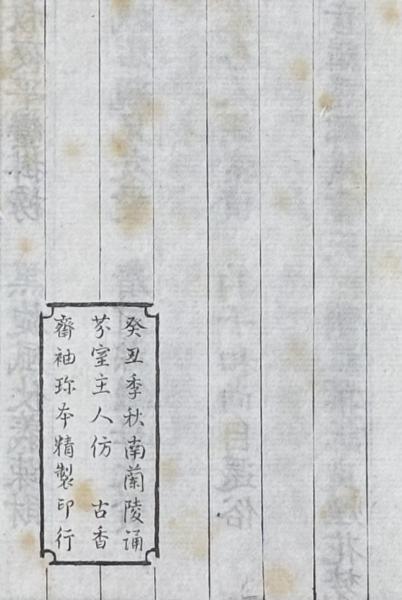 癸丑季秋南蘭陵誦
芬室主人仿 古香
齋袖珍本精製印行